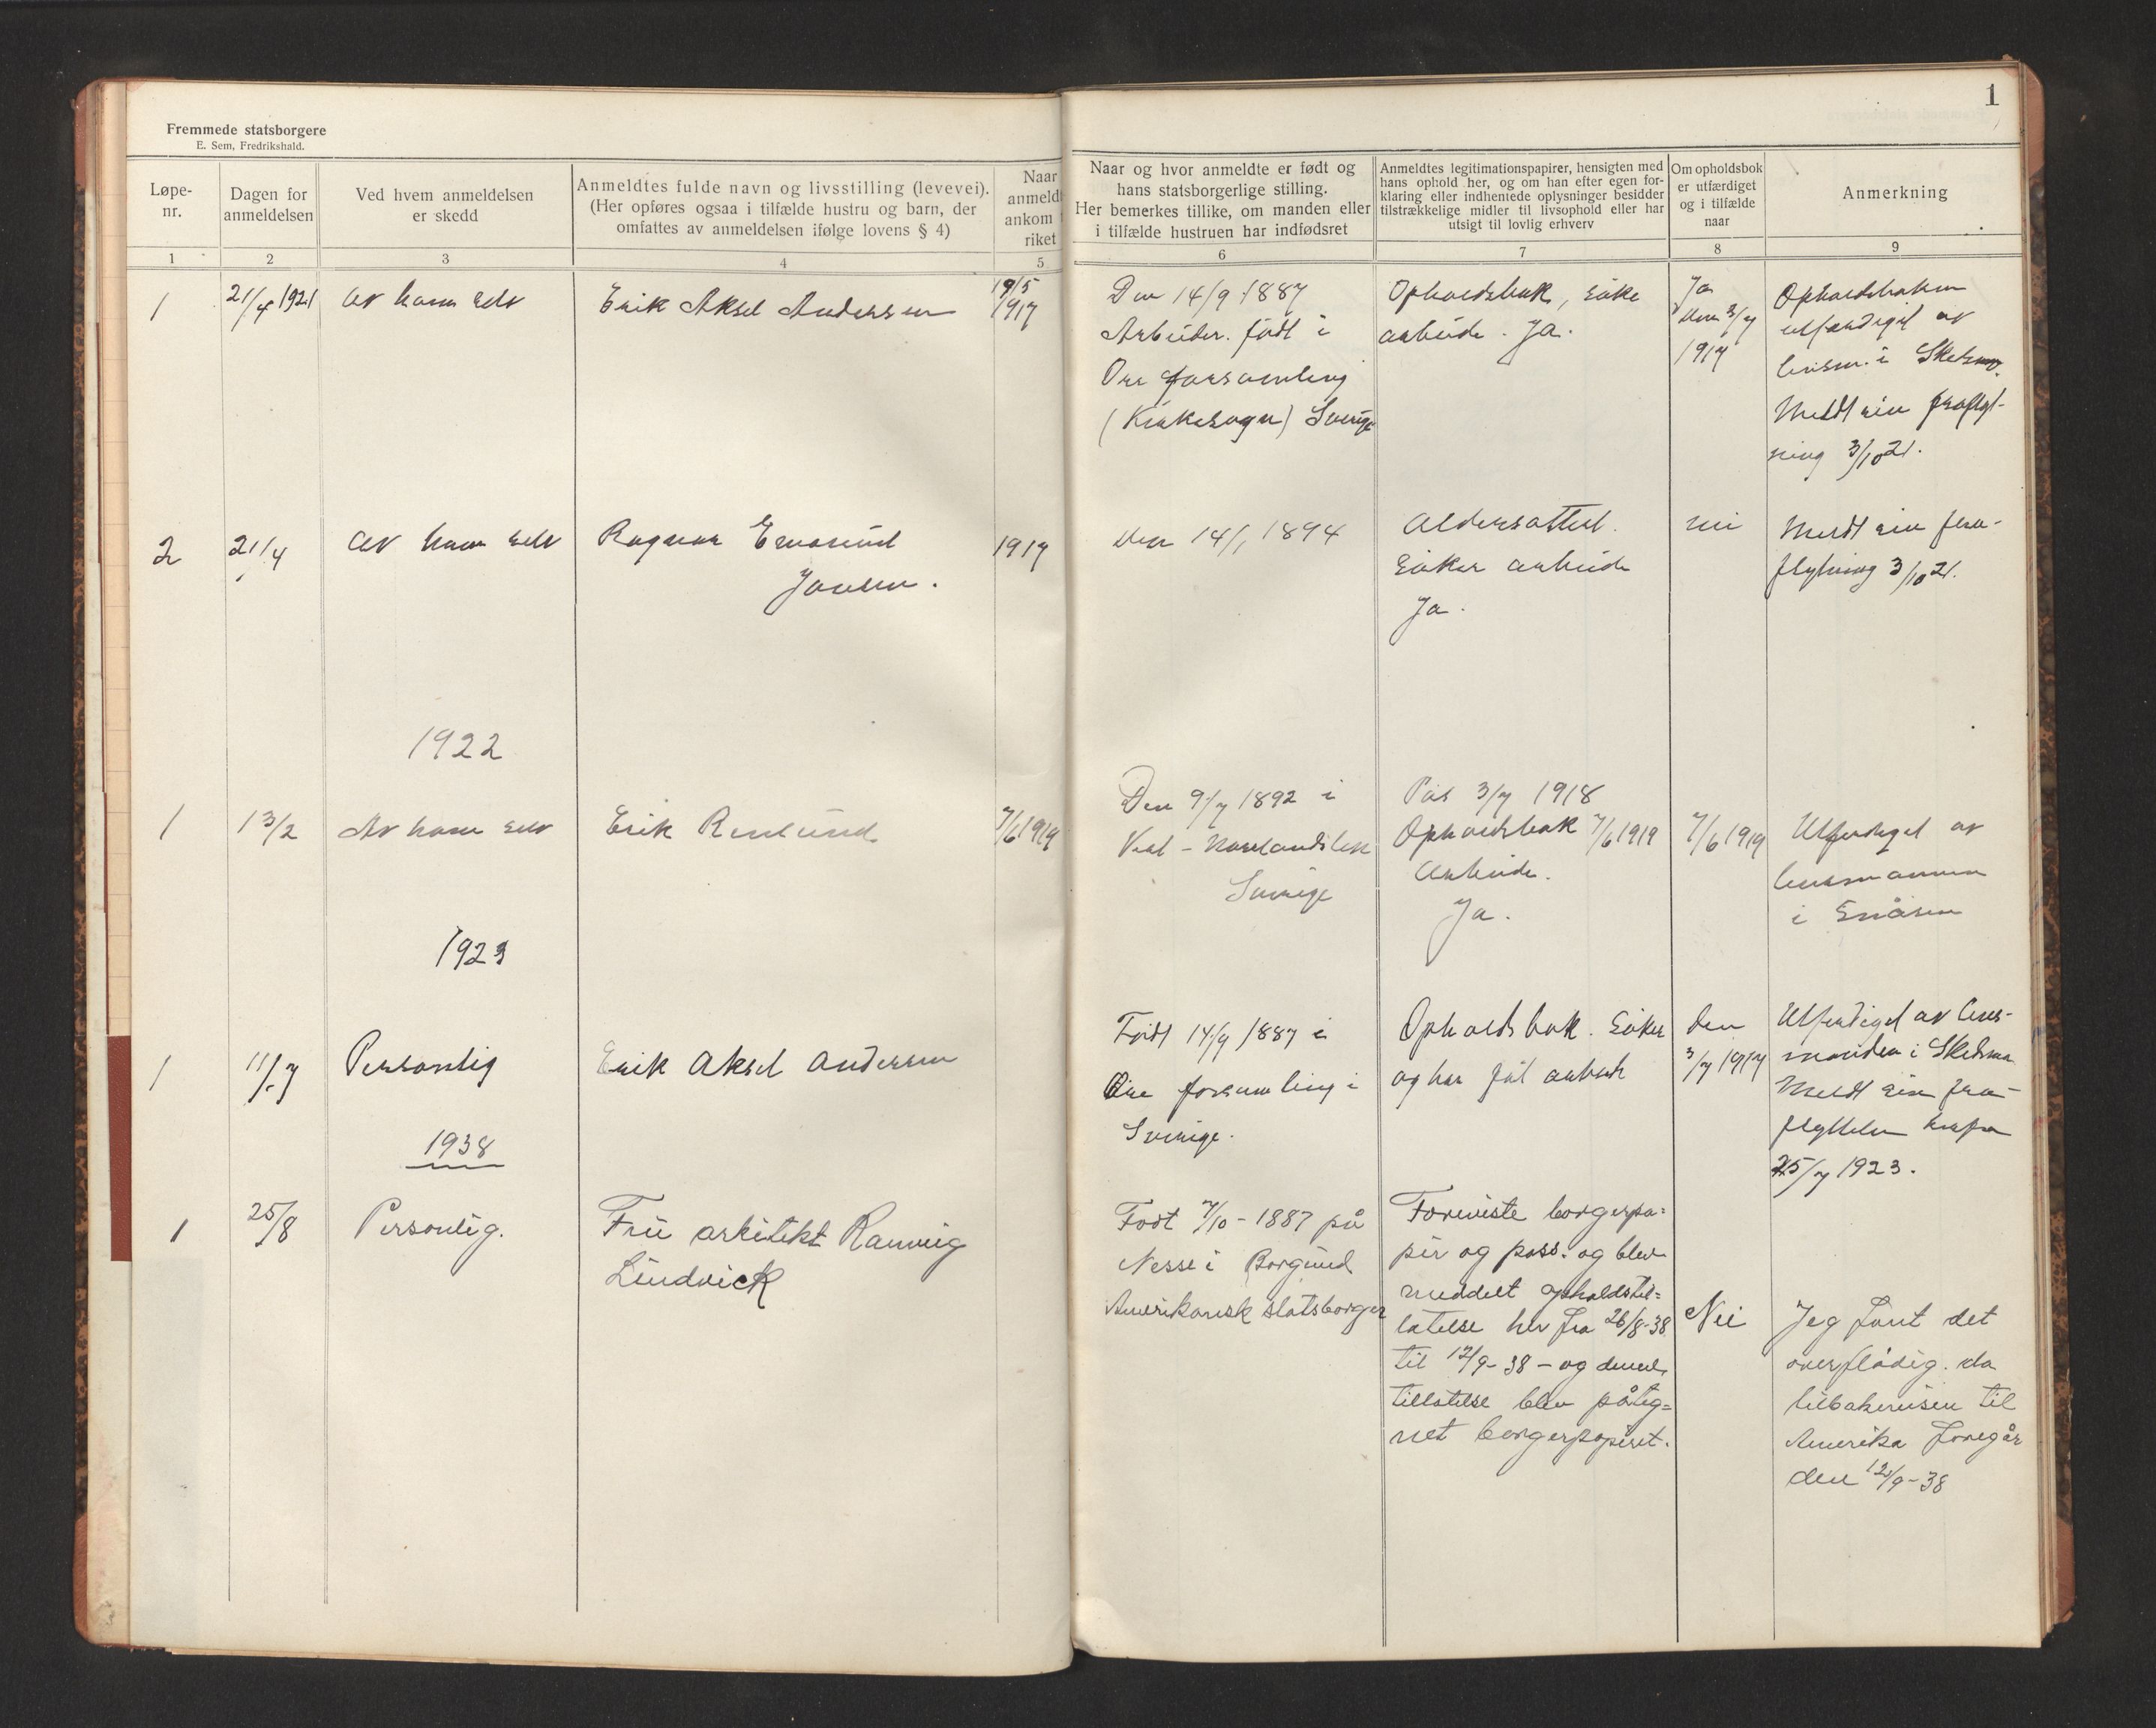 1
Fremmede statsborgere
E. Sem, Fredrikshald.
Løpe-
nr.
Dagen for
anmeldelsen
Ved hvem anmeldelsen
er skedd
Anmeldtes fulde navn og livsstilling (levevei).
(Her opføres ogsaa i tilfælde hustru og barn, der
omfattes av anmeldelsen ifølge lovens § 4)
Naar
anmeldt
ankom
riket
Naar og hvor anmeldte er født og
hans statsborgerlige stilling.
Her bemerkes tillike, om manden eller
i tilfælde hustruen har indfødsret
Anmeldtes legitimationspapirer, hensigten med
hans ophold her, og om han efter egen for-
klaring eller indhentede oplysninger besidder
tilstrækkelige midler til livsophold eller har
utsigt til lovlig erhverv
Om opholdsbok
er utfærdiget
og i tilfælde
naar
Anmerkning
1 2 3 4 5 6 7 8 9
1
21/4 1921
Av ham selv
Erik Aksel Andersen
19/5
1917
Den 14/9 1887
Arbeider. født i
Ore forsamling
(Kirkesogn) Sverige
Opholdsbok, søke
arbeide. Ja.
Ja
den 3/7
1917
Opholdsboken
utfærdiget av
lensm. i Skedsmo.
Meldt sin fraflyt-
ning 3/10 21.
2
21/4
Av ham selv
Ragnar Emanuel
Jansen.
1917
den 14/1 1894
Aldersattest.
Søker arbeide
Ja.
nei
Meldt sin fra-
flytning 3/10 21.
1922
1
13/2
Av ham selv
Erik Renlund
7/6 1919
Den 9/7 1892 i
Sverige
Pas 3/7 1918
Opholdsbok 7/6 1919
Arbeide.
Ja.
7/6 1919
Utferdiget av
lensmannen
i Snåsen
1923
1
11/7
Personlig
Erik Aksel Andersen
Født 14/9 1887 i
Ore forsamling i
Sverige.
Opholdsbok. Søker
og har fåt arbeide
den
3/7 1917
Utferdiget av lens-
manden i Skedsmo
Meldt sin fra-
flyttelse herfra
25/7 1923.
1938
1
25/8
Personlig.
Fru arkitekt Rannveig
Lindvick
Født 7/10 - 1887 på
Nesse i Borgund
Amerikansk statsborger
Foreviste borgerpa=
pir og pass. og blev
meddelt opholdstil=
latelse her fra 26/8-38
til 12/9-38 - og denne
tillatelse blev påteg=
net borgerpapiret.
Nei
Jeg fant det
overflødig. da
tilbakereisen til
Amerika foregår
den 12/9-38